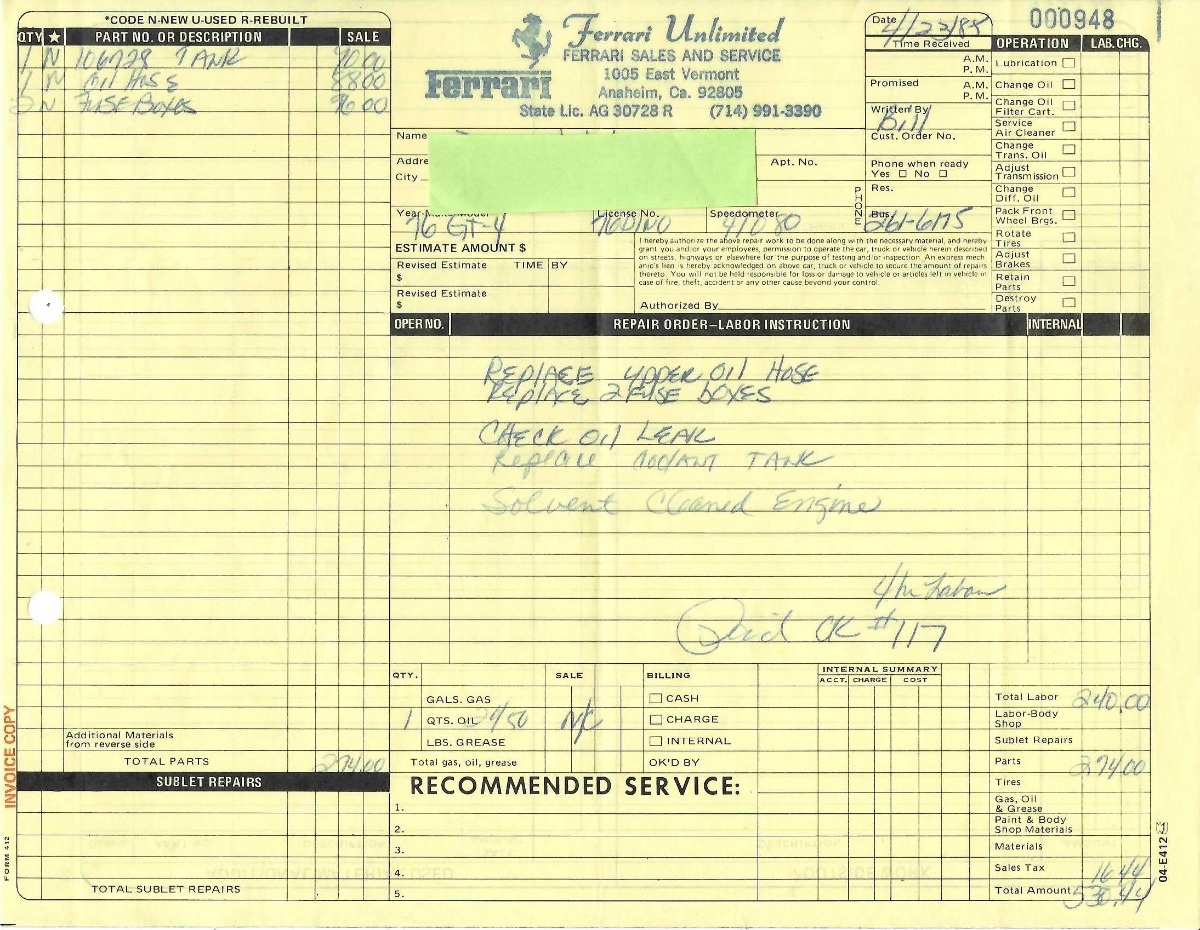 *CODE N-NEW U-USED R-REBUILT
QTY ★ PART NO. OR DESCRIPTION SALE
1 N 106728 TANK 90.00
1 N Oil HOSE 88.00
2 N FUSE BOXES 96.00
Additional Materials
from reverse side
TOTAL PARTS 274.00
SUBLET REPAIRS
TOTAL SUBLET REPAIRS
INVOICE COPY
FORM 412
Ferrari Unlimited
FERRARI SALES AND SERVICE
Ferrari
1005 East Vermont
Anaheim, Ca. 92805
State Lic. AG 30728 R (714) 991-3390
Date 4/23/88
Time Received
A.M.
P.M.
Promised A.M.
P.M.
Written By
Bill
Cust. Order No.
Phone when ready
Yes No
PHONE
Res.
Bus. 261-6175
000948
Name
Addre
Apt. No.
City
Year-Make-Model License No. Speedometer
76 GT-4 76DINO 41080
ESTIMATE AMOUNT $
Revised Estimate TIME BY
$
Revised Estimate
$
I hereby authorize the above repair work to be done along with the necessary material, and hereby
grant you and/or your employees, permission to operate the car, truck or vehicle herein described
on streets, highways or elsewhere for the purpose of testing and/or inspection. An express mech
anic's lien is hereby acknowledged on above car, truck or vehicle to secure the amount of repairs
thereto. You will not be held responsible for loss or damage to vehicle or articles left in vehicle in
case of fire, theft, accident or any other cause beyond your control.
Authorized By
OPERATION LAB.CHG.
Lubrication
Change Oil
Change Oil
Filter Cart.
Service
Air Cleaner
Change
Trans. Oil
Adjust
Transmission
Change
Diff. Oil
Pack Front
Wheel Brgs.
Rotate
Tires
Adjust
Brakes
Retain
Parts
Destroy
Parts
OPER NO. REPAIR ORDER–LABOR INSTRUCTION INTERNAL
REPLACE UPPER OIl HOSE
REPLACE 2 FUSE BOXES
CHECK OIl LEAK
Replace COOLANT TANK
Solvent Cleaned Engine
4 hr Labor
Paid CK # 117
QTY. SALE
GALS. GAS
1 QTS. OIL 2450 N/C
LBS. GREASE
Total gas, oil, grease
BILLING
CASH
CHARGE
INTERNAL
OK'D BY
INTERNAL SUMMARY
ACCT. CHARGE COST
RECOMMENDED SERVICE:
1.
2.
3.
4.
5.
Total Labor 240.00
Labor-Body
Shop
Sublet Repairs
Parts 274.00
Tires
Gas, Oil
& Grease
Paint & Body
Shop Materials
Materials
Sales Tax 16.44
Total Amount 530.44
04-E412